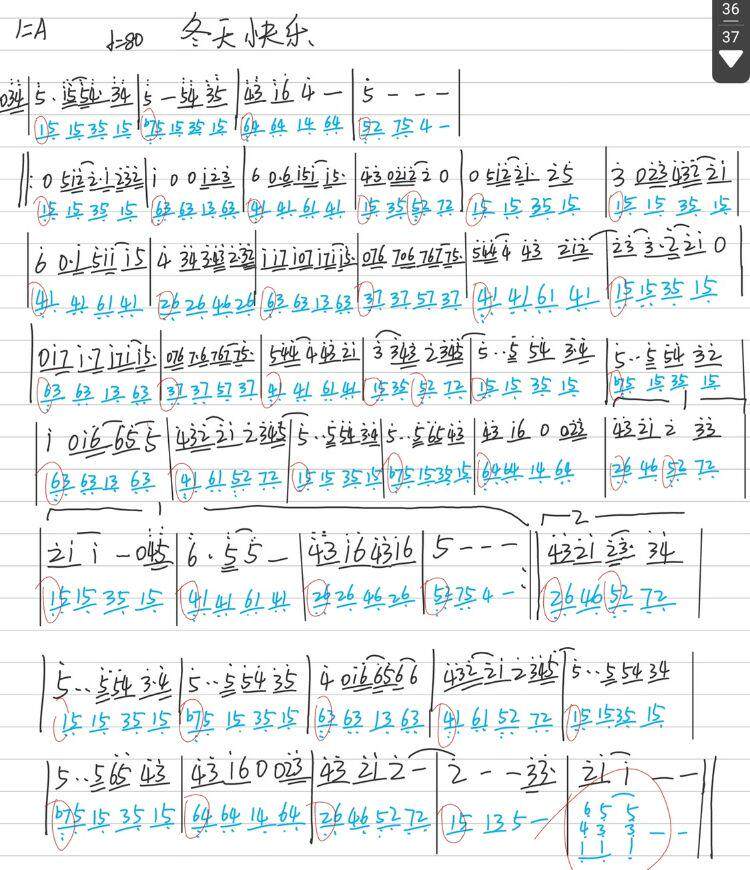 1=A ♩=80 冬天快乐 36
37
034 | 5· 1554· 34 | 5 — 54 35 | 43 16 4 — | 5 - - - |
15 15 35 15 | b75 15 35 15 | 64 64 14 64 | 52 75 4 - |
‖: 0 5122·1232 | 1 0 0 123 | 6 0·6 151 15· | 43 0212 2 0 | 0 512 21· 25 | 3 023 432 21 |
15 15 35 15 | 63 63 13 63 | 41 41 61 41 | 15 35 52 72 | 15 15 35 15 | 15 15 35 15 |
6 0·1 511 15 | 4 34 343 232 | 117 107 171 15· | 076 706 767 75· | 544 4 43 212 | 23 3·2 21 0 |
41 41 61 41 | 26 26 46 26 | 63 63 13 63 | 37 37 57 37 | 41 41 61 41 | 15 15 35 15 |
017 1·7 171 15· | 076 7·6 767 75· | 544 4 43 21 | 3 343 2 345 | 5··5 54 3·4 | 5··5 54 32 |
63 63 13 63 | 37 37 57 37 | 41 41 61 41 | 15 35 52 72 | 15 15 35 15 | b75 15 35 15 |
1
1 016 65 5 | 432 21 2 345 | 5··5 54 34 | 5··5 65 43 | 43 16 0 023 | 43 21 2 33 |
63 63 13 63 | 41 61 52 72 | 15 15 35 15 | b75 15 35 15 | 64 64 14 64 | 26 46 52 72 |
1 2
21 1 - 045 | 6· 5 5 — | 43 16 43 16 | 5 - - - :‖ 43 21 23· 34 |
15 15 35 15 | 41 41 61 41 | 26 26 46 26 | 52 75 4 - | 26 46 52 72 |
5··5 54 3·4 | 5··5 54 35 | 4 016 656 6 | 432 21 2 345 | 5··5 54 34 |
15 15 35 15 | b75 15 35 15 | 63 63 13 63 | 41 61 52 72 | 15 15 35 15 |
5··5 65 43 | 43 16 0 023 | 43 21 2 - | 2 - - 33· | 21 1 - - ‖
b75 15 35 15 | 64 64 14 64 | 26 46 52 72 | 15 13 5 - | 6 5 5
4 3 3 - -
1 1 1